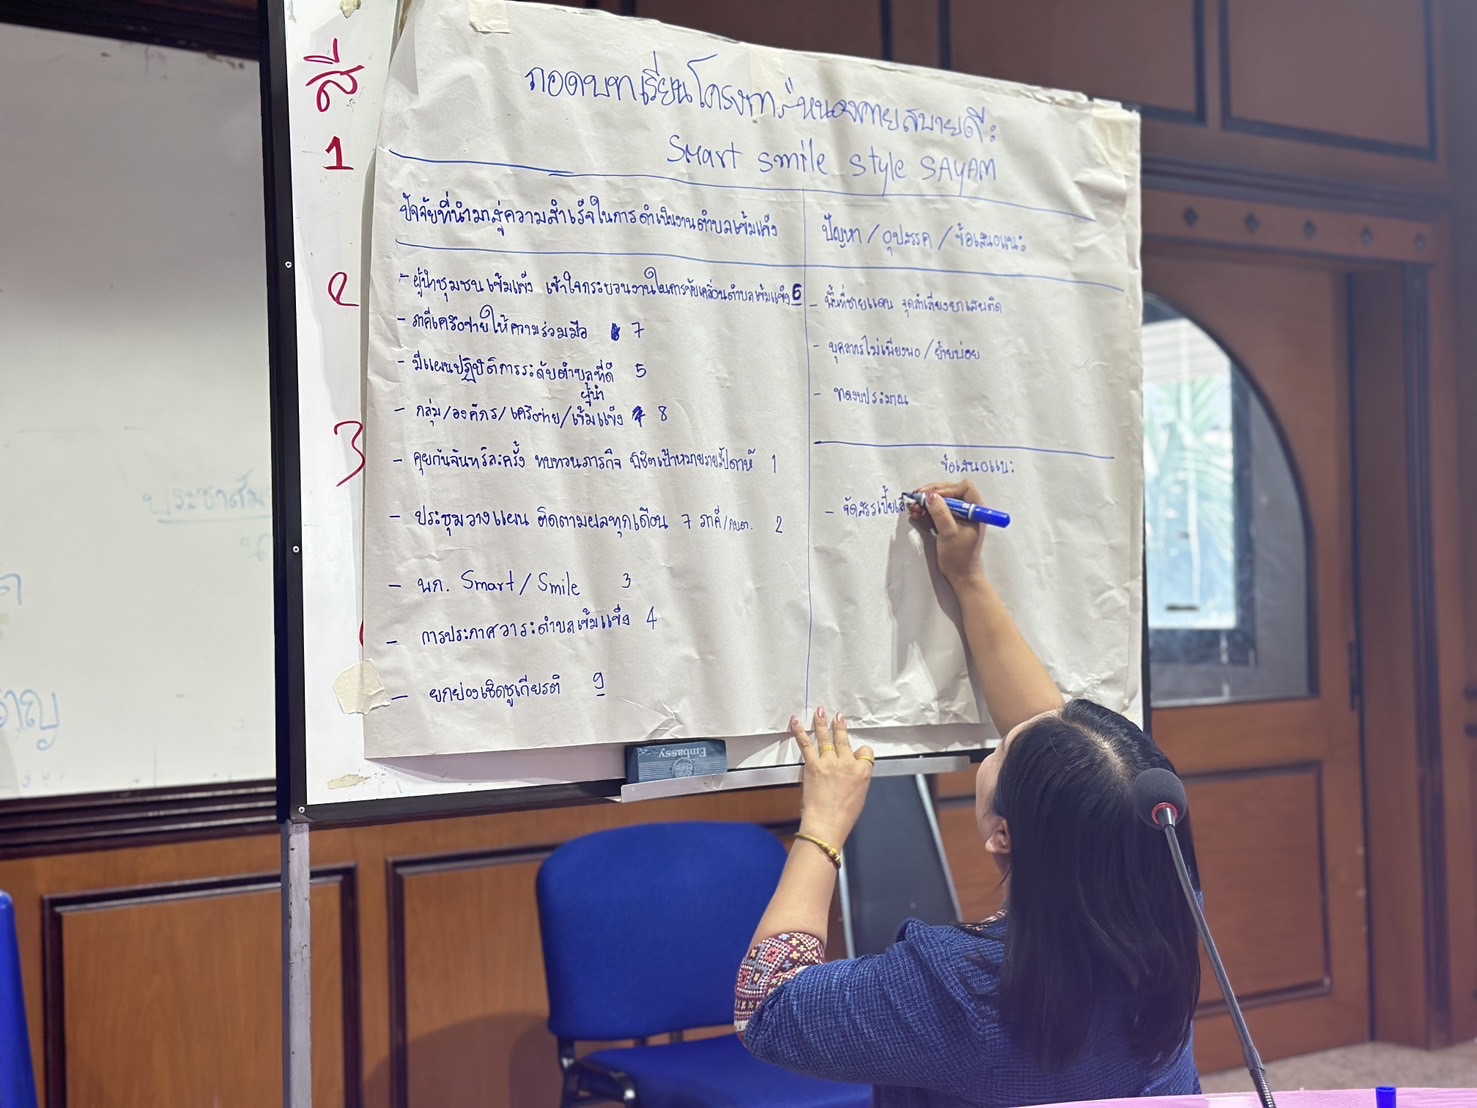 สี
1
2
3
ถอดบทเรียนโครงการหนองคายสบายดี :
Smart Smile Style SAYAM
ปัจจัยที่นำมาสู่ความสำเร็จในการดำเนินงานตำบลเข้มแข็ง
- ผู้นำชุมชนเข้มแข็ง เข้าใจกระบวนงานในการขับเคลื่อนตำบลเข้มแข็ง 6
- ภาคีเครือข่ายให้ความร่วมมือ 7
- มีแผนปฏิบัติการระดับตำบลที่ดี 5
ผู้นำ
- กลุ่ม/องค์กร/เครือข่าย/เข้มแข็ง 8
- คุยกันจันทร์ละครั้ง ทบทวนภารกิจ พิชิตเป้าหมายรายสัปดาห์ 1
- ประชุมวางแผน ติดตามผลทุกเดือน 7 ภาคี/กบต. 2
- นก. Smart/Smile 3
- การประกาศวาระตำบลเข้มแข็ง 4
- ยกย่องเชิดชูเกียรติ 9
ปัญหา / อุปสรรค / ข้อเสนอแนะ
- พื้นที่ชายแดน จุดลำเลียงยาเสพติด
- บุคลากรไม่เพียงพอ / ย้ายบ่อย
- งบประมาณ
ข้อเสนอแนะ
- จัดสรรเบี้ยเลี้
Embassy